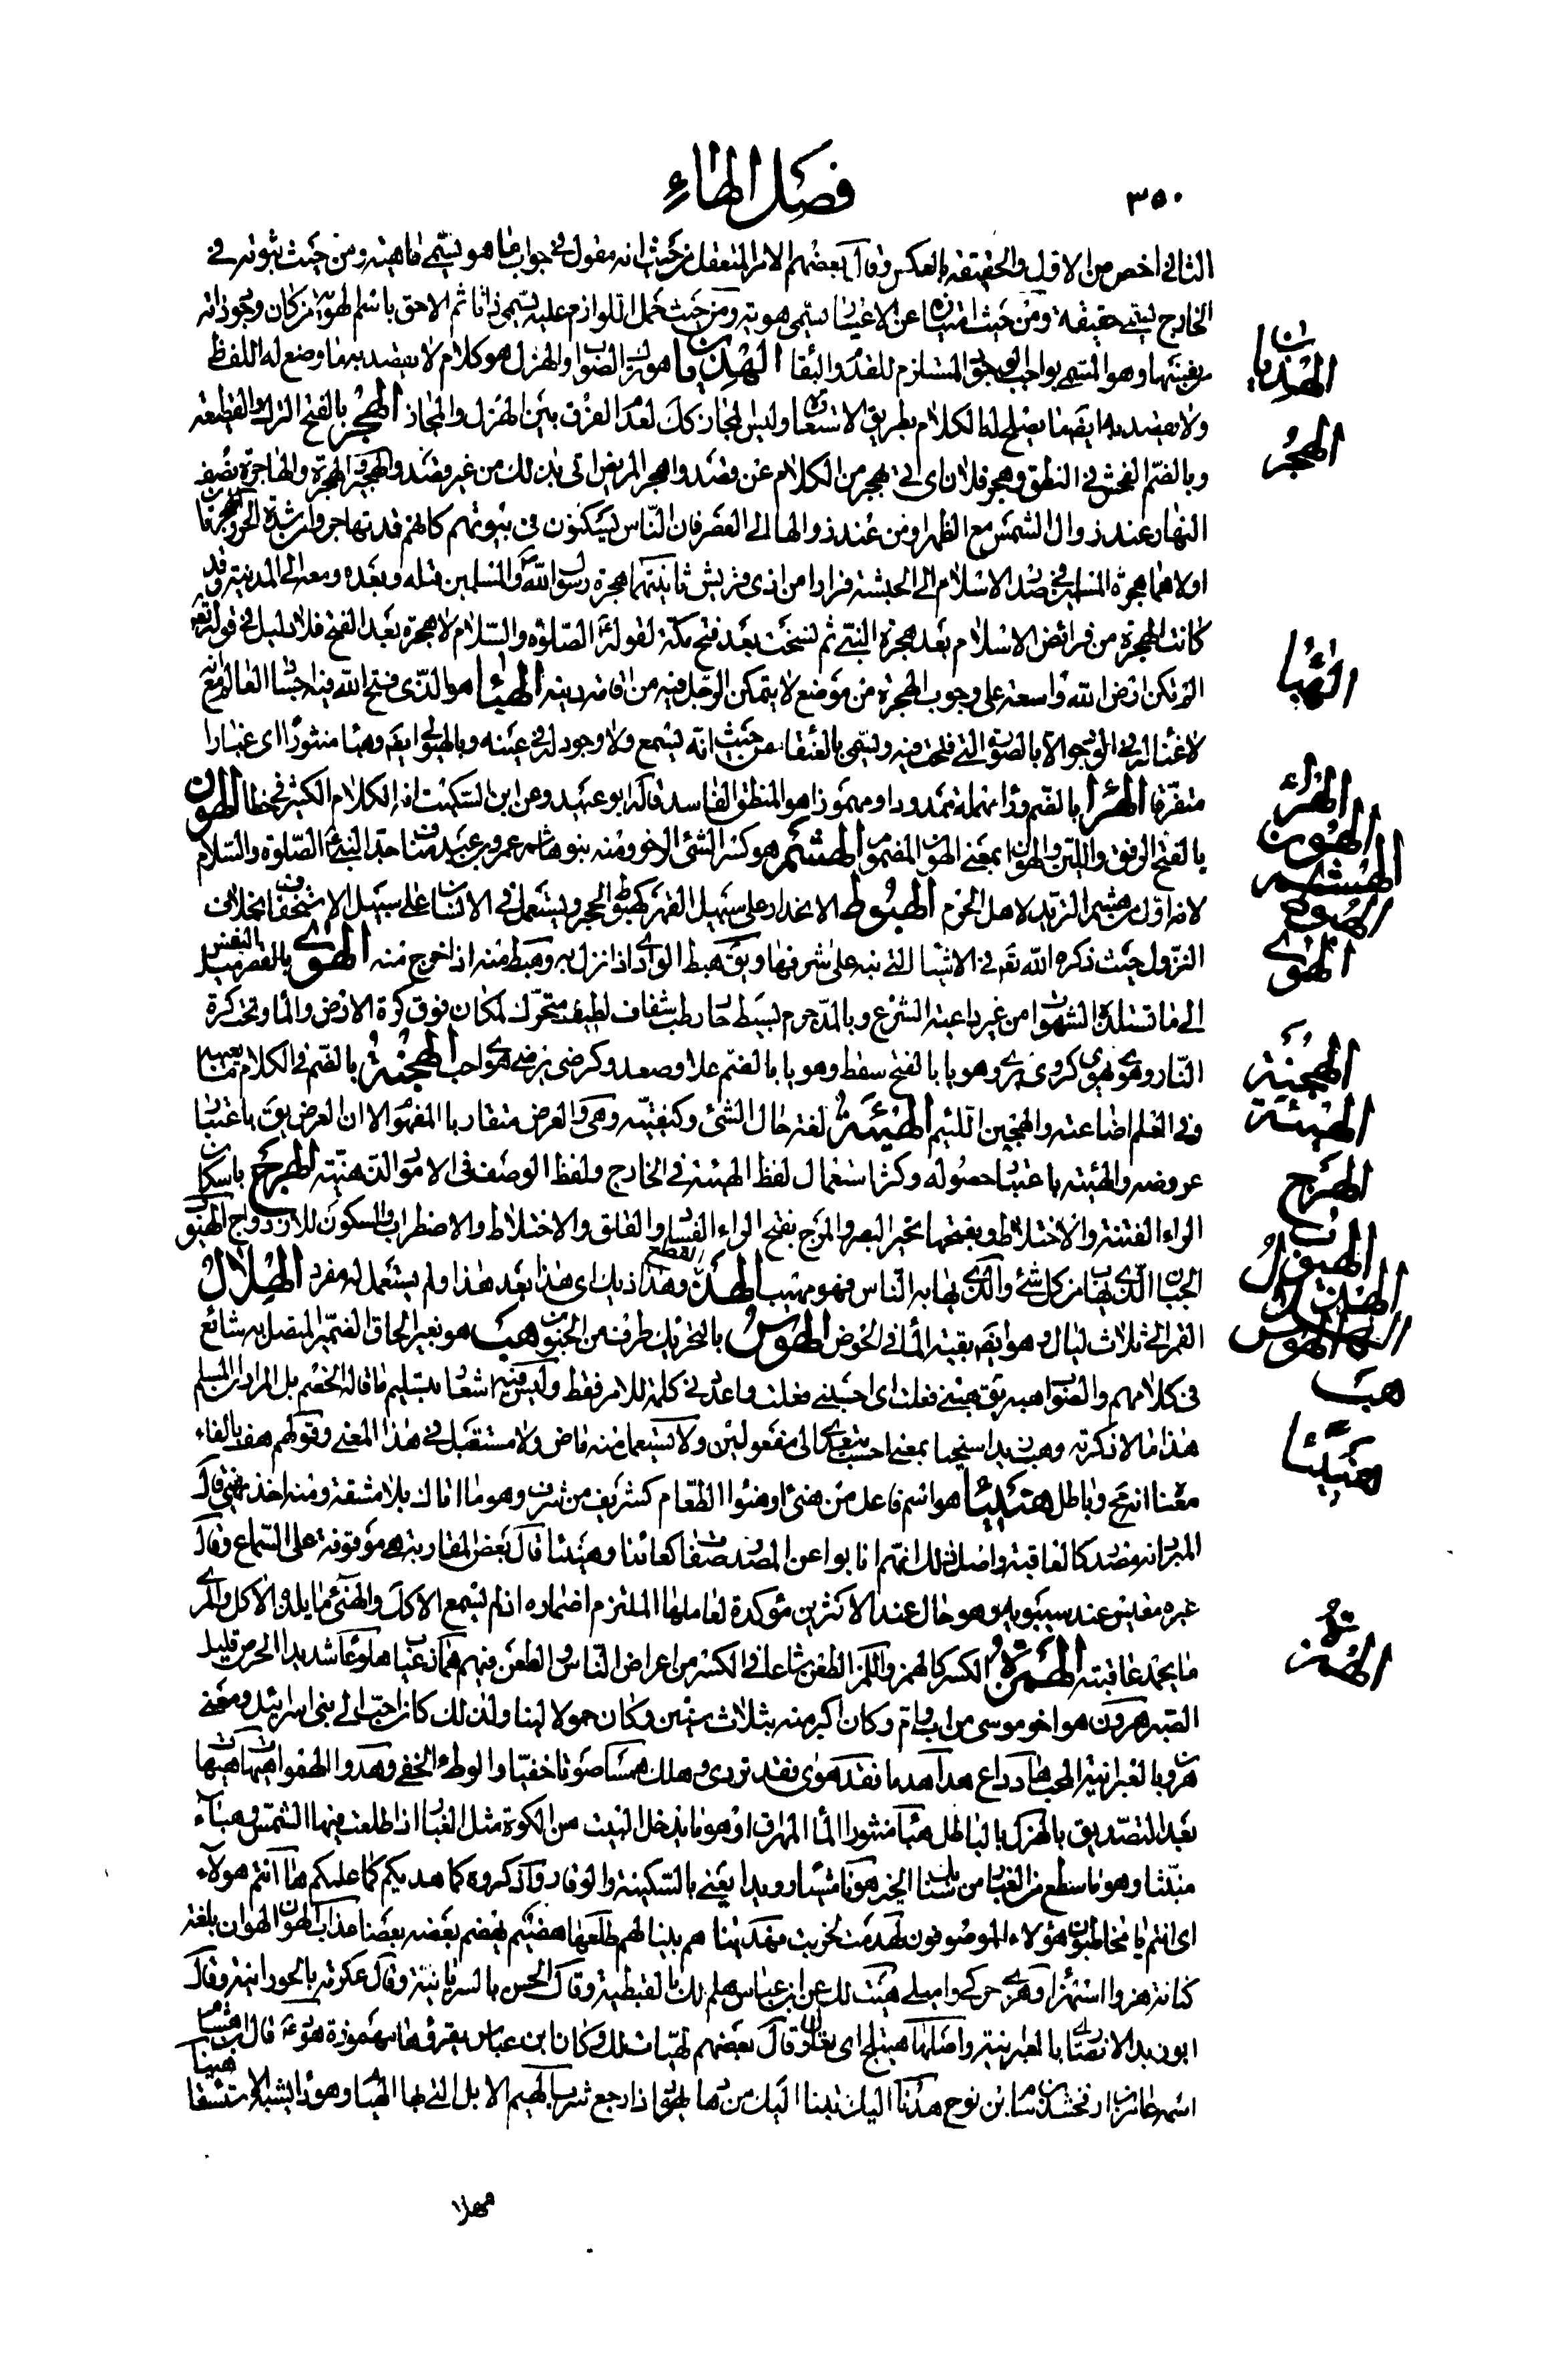 ٣٥٠
فصل الهاء
الثاني اخص من الاول والحقيقة بالعكس وقال بعضهم الامر المتعقل من حيث انه مقول في جواب ما هو يسمى ماهية ومن حيث ثبوته في
الخارج يسمى حقيقة ومن حيث امتيازه عن الاغيار يسمى هوية ومن حيث حمل اللوازم عليه يسمى ذاتا ثم الاحق باسم الهوية من كان وجود ذاته
من نفسها وهو المسمى بواجب الوجود المستلزم للقدم والبقا الهذيان ما هو ترك الصواب والهزل هو كلام لا يقصد به ما وضع له اللفظ
ولا يقصد به ايضا ما يصلح له الكلام بطريق الاستعارة وليس المجاز كذلك لعدم الفرق بين الهزل والمجاز الهجر بالفتح الترك والقطيعة
وبالضم الفحش في النطق وهجر فلان اى اتى بهجر من الكلام عن قصد واهجر المريض اتى بذلك من غير قصد والهجير والهجيرة والهاجرة نصف
النهار عند زوال الشمس مع الظهر او من عند زوالها الى العصر فان الناس يسكنون في بيوتهم كانهم قد تهاجروا من شدة الحر والهجرة هجرتان
اولاهما هجرة المسلمين في صدر الاسلام الى الحبشة فرارا من اذى قريش ثانيتهما هجرة رسول الله والمسلمين قبله وبعده ومعه الى المدينة وقد
كانت الهجرة من فرائض الاسلام بعد هجرة النبي ثم نسخت بعد فتح مكة لقوله الصلوة والسلام لا هجرة بعد الفتح فلا دليل في قوله تعه
الم تكن ارض الله واسعة على وجوب الهجرة من موضع لا يتمكن الرجل فيه من اقامة دينه الهبا هو الذى فتح الله فيه اجسام العالم مع انه
لا عين له في الوجود الا بالصورة التي فتحت فيه ويسمى بالعنقا من حيث انه يسمع ولا وجود له في عينه وبالهيولى ايضه وهبا منثورا اى غبارا
متفرقا الهرا بالضم وذا مهملة ممدودا ومهموزا هو المنطق الفاسد قاله ابو عبيد وعن ابن السكيت انه الكلام الكثير في خطا الهون
بالفتح الرفق واللين والهوان بمعنى الهون المضموم الهشم هو كسر الشئ الرخو ومنه بنو هاشم عمرو بن عبد مناف جد النبي الصلوة والسلام
لانه اول من هشم الثريد لاهل الحرم الهبوط الانحدار على سبيل القهر كهبوط الحجر ويستعمل في الانسان على سبيل الاستخفاف بخلاف
النزول حيث ذكره الله تعه في الاشيا التي نبه على شرفها ويقه هبط الوادى اذا نزل به وهبط منه اذا خرج منه الهوى بالقصر ميل النفس
الى ما تستلذه الشهوات من غير داعية الشرع وبالمد جرم بسيط حار رطب شفاف لطيف متحرك لمكان فوق كرة الارض والما وتحت كرة
النار وهوى يهوى كرمى يرمى وهويا بالفتح سقط وهويا بالضم علا وصعد وكرضى يرضى هوى احب الهجنة بالضم في الكلام ما يعيبه
وفي العلم اضاعته والهجين اللئيم الهيئة لغة حال الشئ وكيفيته وهى والعرض متقاربا المفهوم الا ان العرض يقه باعتبار
عروضه والهيئة باعتبار حصوله وكثر استعمال لفظ الهيئة في الخارج ولفظ الوصف في الامور الذهنية الهرج باسكان
الراء الفتنة والاختلاط وبفتحها تحير البصر والمرج بفتح الراء الفساد والقلق والاختلاط والاضطراب والسكون للازدواج الهيوب
الجبان الذى يهاب من كل شئ والذى يهابه الناس فهو مهيب الهذ القطع وهذاذيك اى هذا بعد هذا ولم يستعمل له مفرد الهلال
القمر الى ثلاث ليال وهو ايضه بقية الما في الحوض الهوس بالتحريك طرف من الجنون هب هو بغير الحاق الضمير المتصل به شائع
في كلامهم والصواب هبه يقه هبني فعلت اى احسبني فعلت واعددني كلمة للامر فقط وليس فيه اشعار بتسليم ما قاله الخصم بل المراد ان المسلم
هذا ما لا ذكرته وهب زيدا سخيا بمعنى احسب يتعدى الى مفعولين ولا يستعمل منه ماض ولا مستقبل في هذا المعنى وقولهم هف بالفاء
معنا انهج وباطل هنيئا هو اسم فاعل من هنئ او هنئوا الطعام كشريف من شرف وهو ما اتاك بلا مشقة ومنه اخذ يهنئ قال
المبرد انه مصدر كالعاقبة واصل ذلك انهم انابوا عن المصدر صفات كعائذا وهنيئا قال بعض المغاربة هى موقوفة على السماع وقال
غيره مقيس عند سيبويه وهو حال عند الاكثرين مؤكدة لعاملها الملتزم اضماره اذ لم يسمع الاكذلك والهنئ ما يلذه الاكل والمرئ
ما يحمد عاقبته الهمزة الكسر كالهمز واللمز الطعن شاعا في الكسر من اعراض الناس والطعن فيهم هلوعا شديد الحرص قليل
الصبر هرون هو اخو موسى من اب وام وكان اكبر منه بثلاث سنين وكان حمولا لينا ولذلك كان احب الى بني اسرائيل ومعنى
هرون بالعبرانية المحبب هاد داع هدا هدما فقد هوى فقد تردى وهلك همسا صوتا خفيا والوطء الخفى وهدوا الهموا هيهات هيهات
بعد التصديق بالهزل بالباطل هبا منثورا الما المهراق او هو ما يدخل البيت من الكوة مثل الغبار اذا طلعت فيها الشمس وهباء
منبثا وهو ما سطع من الغبار من سنابك الخيل هونا مشيا رويدا يعني بالسكينة والوقار واذكروه كما هديكم كما علمكم ها انتم هولاء
اى انتم يا مخاطبون هؤلاء الموصوفون لهدمت لخربت مهدتنا هم بينا لهم طلعها هضيم يهضم بعضه بعضا عذاب الهون الهوان بلغة
كنانة هزوا استهزا وهزى حركي واميلي هيت لك عن ابن عباس هلم لك بالقبطية وقال الحسن بالسريانية وقال عكرمة بالحورانية وقال
ابو زيد الانصارى بالعبرنية واصلها هيتلج اى تعال وقال بعضهم تهيات لك وكان ابن عباس يقرؤها مهموزة هود قال ابن هشام
اسمه عابر بن ارفخشد بن سام بن نوح هدنا اليك تبنا اليك من هاد يهود اذا رجع شرب الهيم الابل التي بها الهيام وهو دا يشبه الاستسقا
مهلا
الهذيان
الهجر
الهبا
الهراء
الهون
الهشم
الهبوط
الهوى
الهجنة
الهيئة
الهرج
الهيوب
الهذ
الهلال
الهوس
هب
هنيئا
الهمزة